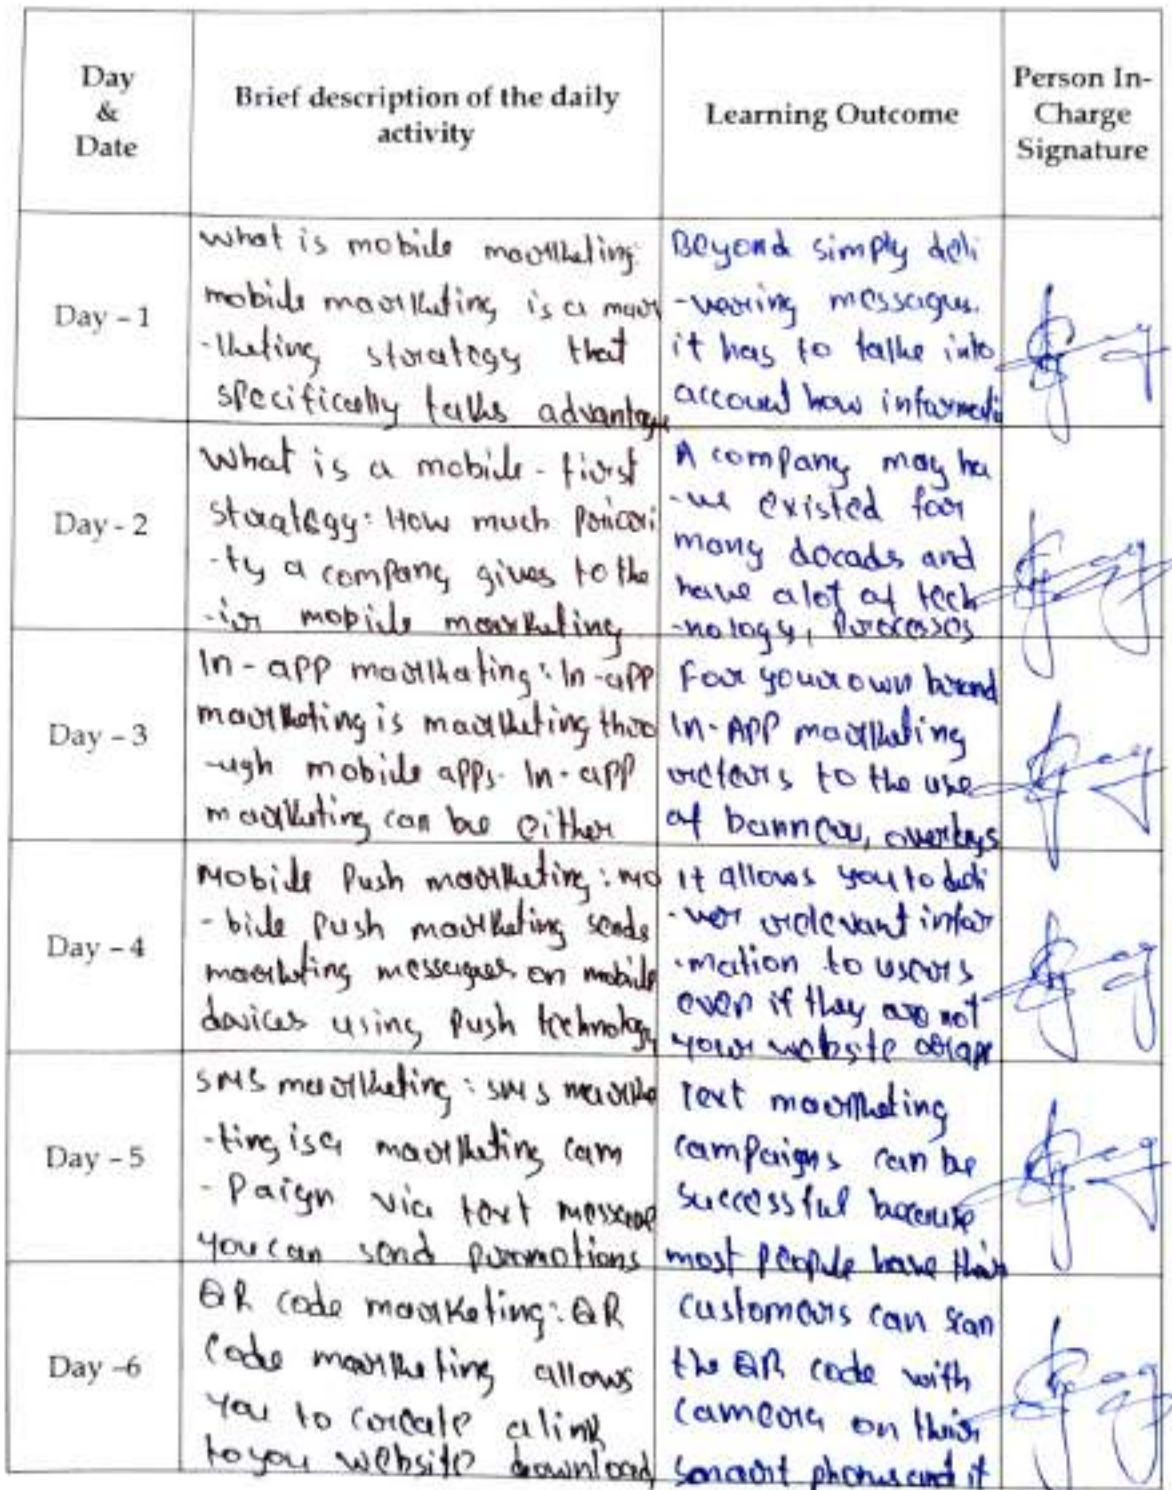 Day
&
Date
Brief description of the daily
activity
Learning Outcome
Person In-
Charge
Signature
Day – 1
What is mobile marketing:
mobile marketing is a mar
-keting strategy that
specifically takes advantage
Beyond simply deli
-vering messages.
it has to take into
account how informati
Day - 2
What is a mobile - first
strategy: How much priori
-ty a company gives to the
-ir mobile marketing
A company may ha
-ve existed for
many docads and
have a lot of tech
-nology, Processes
Day – 3
In - app marketing: In - app
marketing is marketing thro
-ugh mobile apps. In - app
marketing can be either
For your own brand
In-App marketing
refers to the use
of banner, overlays
Day – 4
Mobile Push marketing: mo
- bile push marketing sends
marketing messages on mobile
devices using Push technology
it allows you to deli
-ver relevant infor
-mation to users
even if they are not
your website or app
Day – 5
SMS marketing: SMS marke
-ting is a marketing cam
- Paign via text message
you can send promotions
Text marketing
campaigns can be
successful because
most people have their
Day –6
QR code marketing: QR
Code marketing allows
you to create a link
to you website download
customers can scan
the QR code with
camera on their
smart phones and it